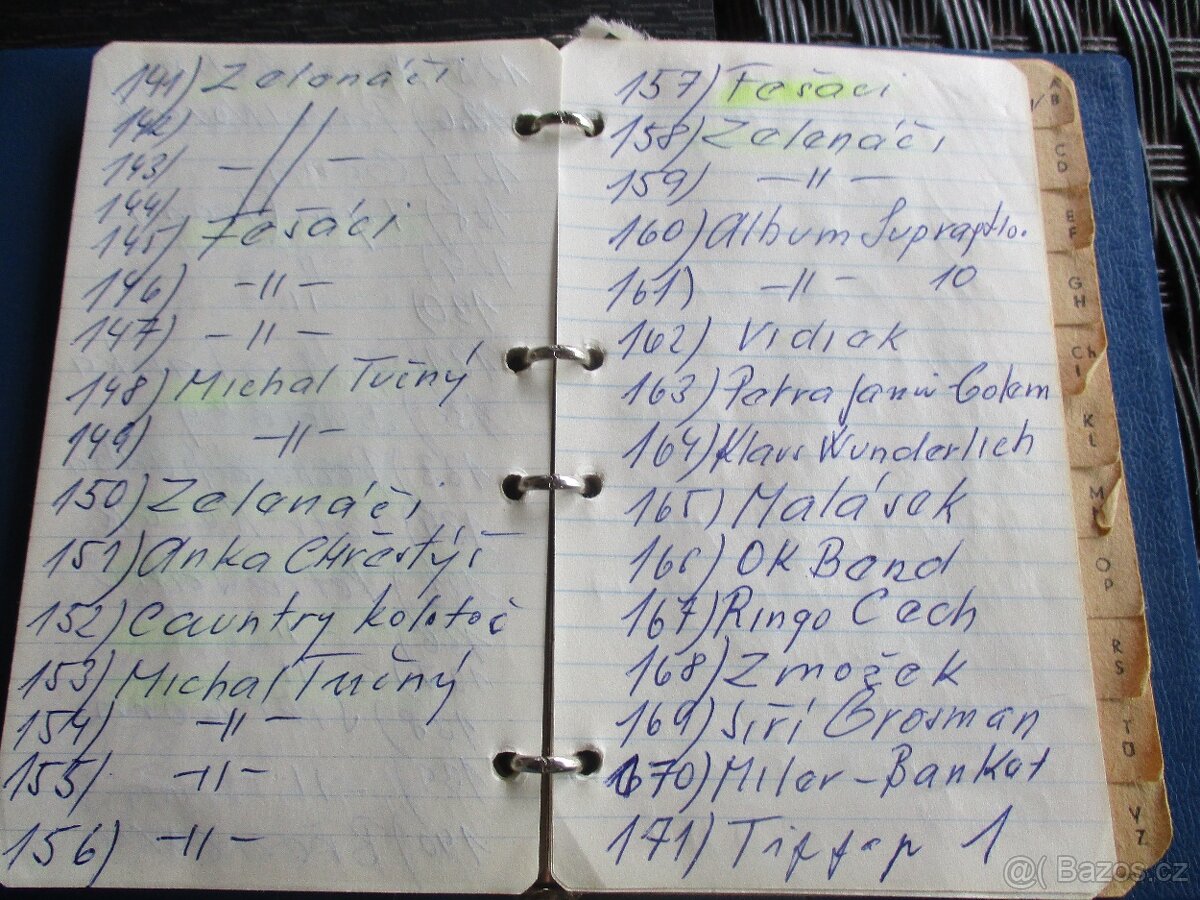 141) Zelenáči
142)
143) -//-
144)
145) Fešáci
146) -//-
147) -//-
148) Michal Tučný
149) -//-
150) Zelenáči
151) Anka CHrěstýč
152) Cauntry kolotoč
153) Michal Tučný
154) -//-
155) -//-
156) -//-
157) Fešáci
158) Zelenáči
159) -//-
160) Album
161) -//- 10
162) Vidiek
163) Petra Janů Golem
164) Klaus Wunderlich
165) Malásek
166) OK Band
167) Ringo Cech
168) Zmožek
169) Jiří Grosman
170) Miler-Banket
171) Tip 1
AB
CD
EF
GH
Ch
CI
KL
M
OP
RS
TU
VZ
@( Bazos.cz